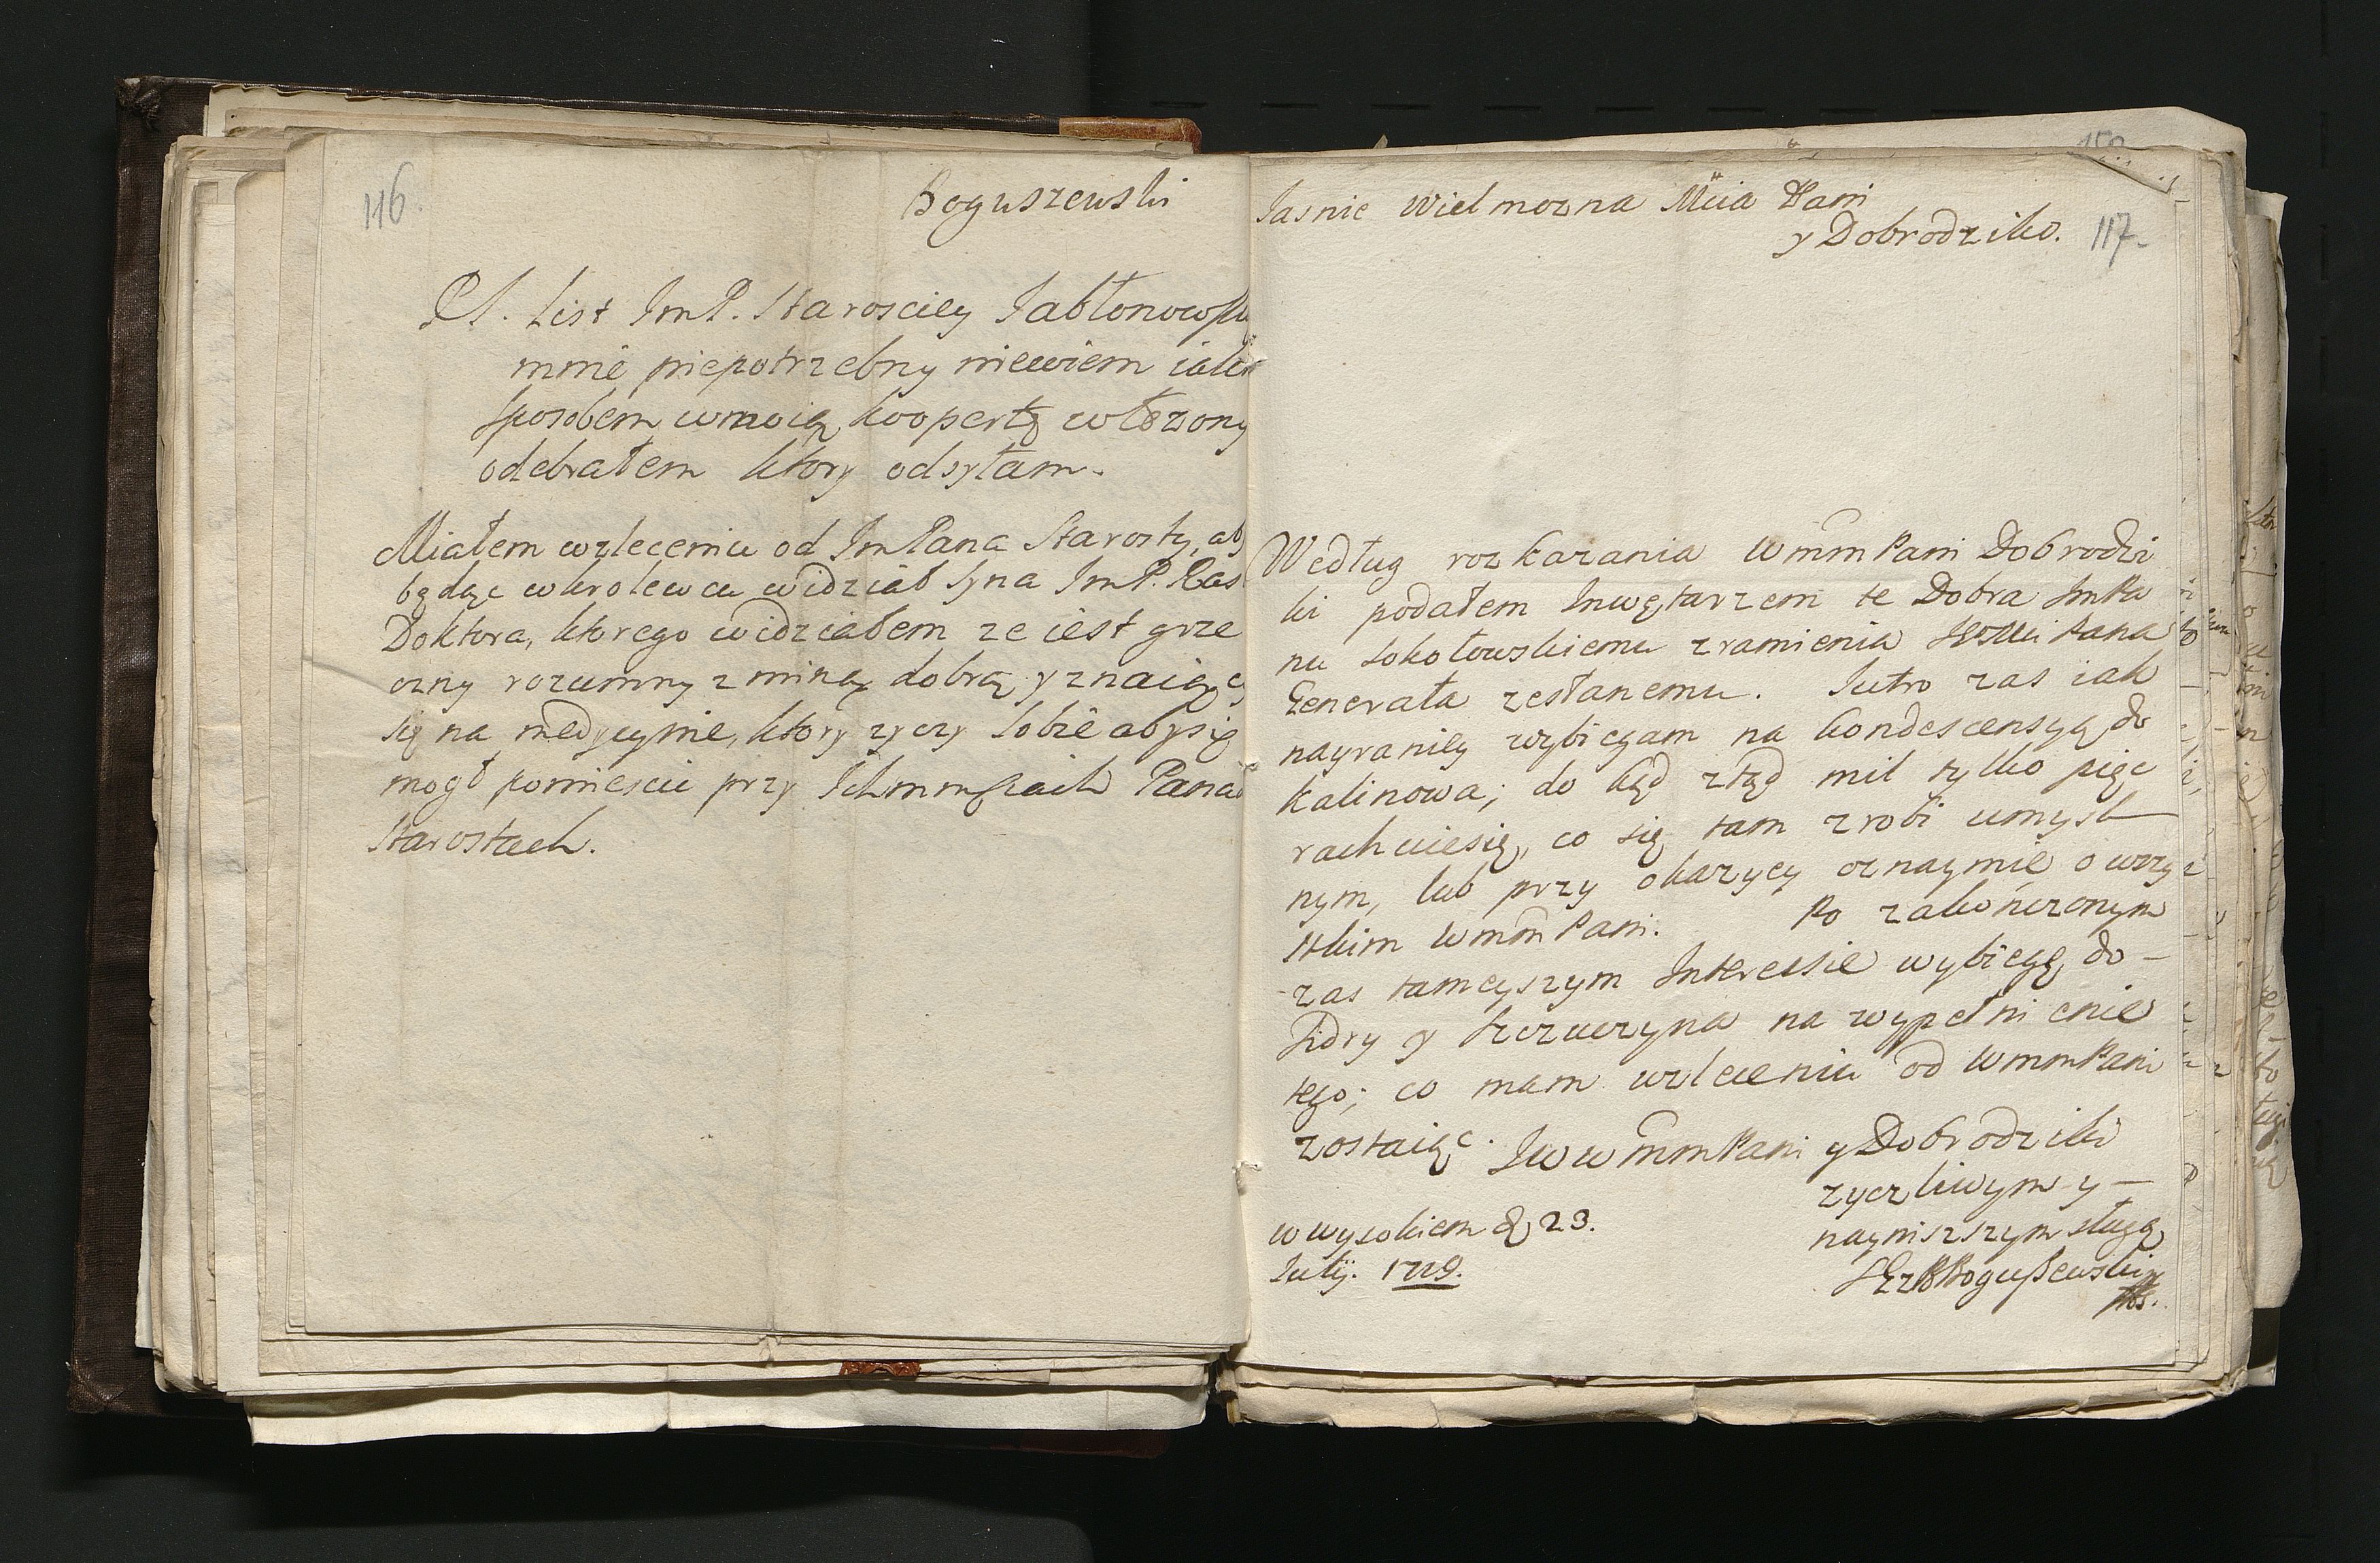 116.
Boguszewski
PS. List ImP. Staroscicy Jabłonowski
mnie niepotrzebny niewiem iakim
sposobem wmoię koopertę włozony
odebrałem ktory odsyłam.
Miałem wzleceniu od ImPana Starosty, aby
będąc wkrolewcu widział Syna ImP. Cas
Doktora, ktorego widziałem ze iest grze
czny rozumny z miną dobrą y znaiący
się na medycynie, ktory zyczy sobie abysię
mogł pomiescic przy Ichmm Panach
Starostach.
Jasnie Wielmozna Mcia Pani
y Dobrodziko.
117.
Według rozkazania Wmm Pani Dobrodzi
ki podałem Inwętarzem te Dobra ImPa
nu Sokołowskiemu zramienia JWMci Pana
Generała zesłanemu. Jutro zas iak
nayraniey wybiegam na kondescensyą do
Kalinowa; do kąd ztąd mil tylko pięc
rachuiesię, co się tam zrobi umysl
nym, lub przy okazycy oznaymię o wszy
stkim Wmm Pani. Po zakonczonym
zas tameyszym Interessie wybiegę do
Sidry y Szczuczyna na wypełnienie
tego; co mam wzleceniu od WmmPani
zostaiąc. JWWmmPani y Dobrodziki
zyczliwym y
nayniszszym sługą
Boguszewski
w wysokiem d 23.
Julij. 1729.